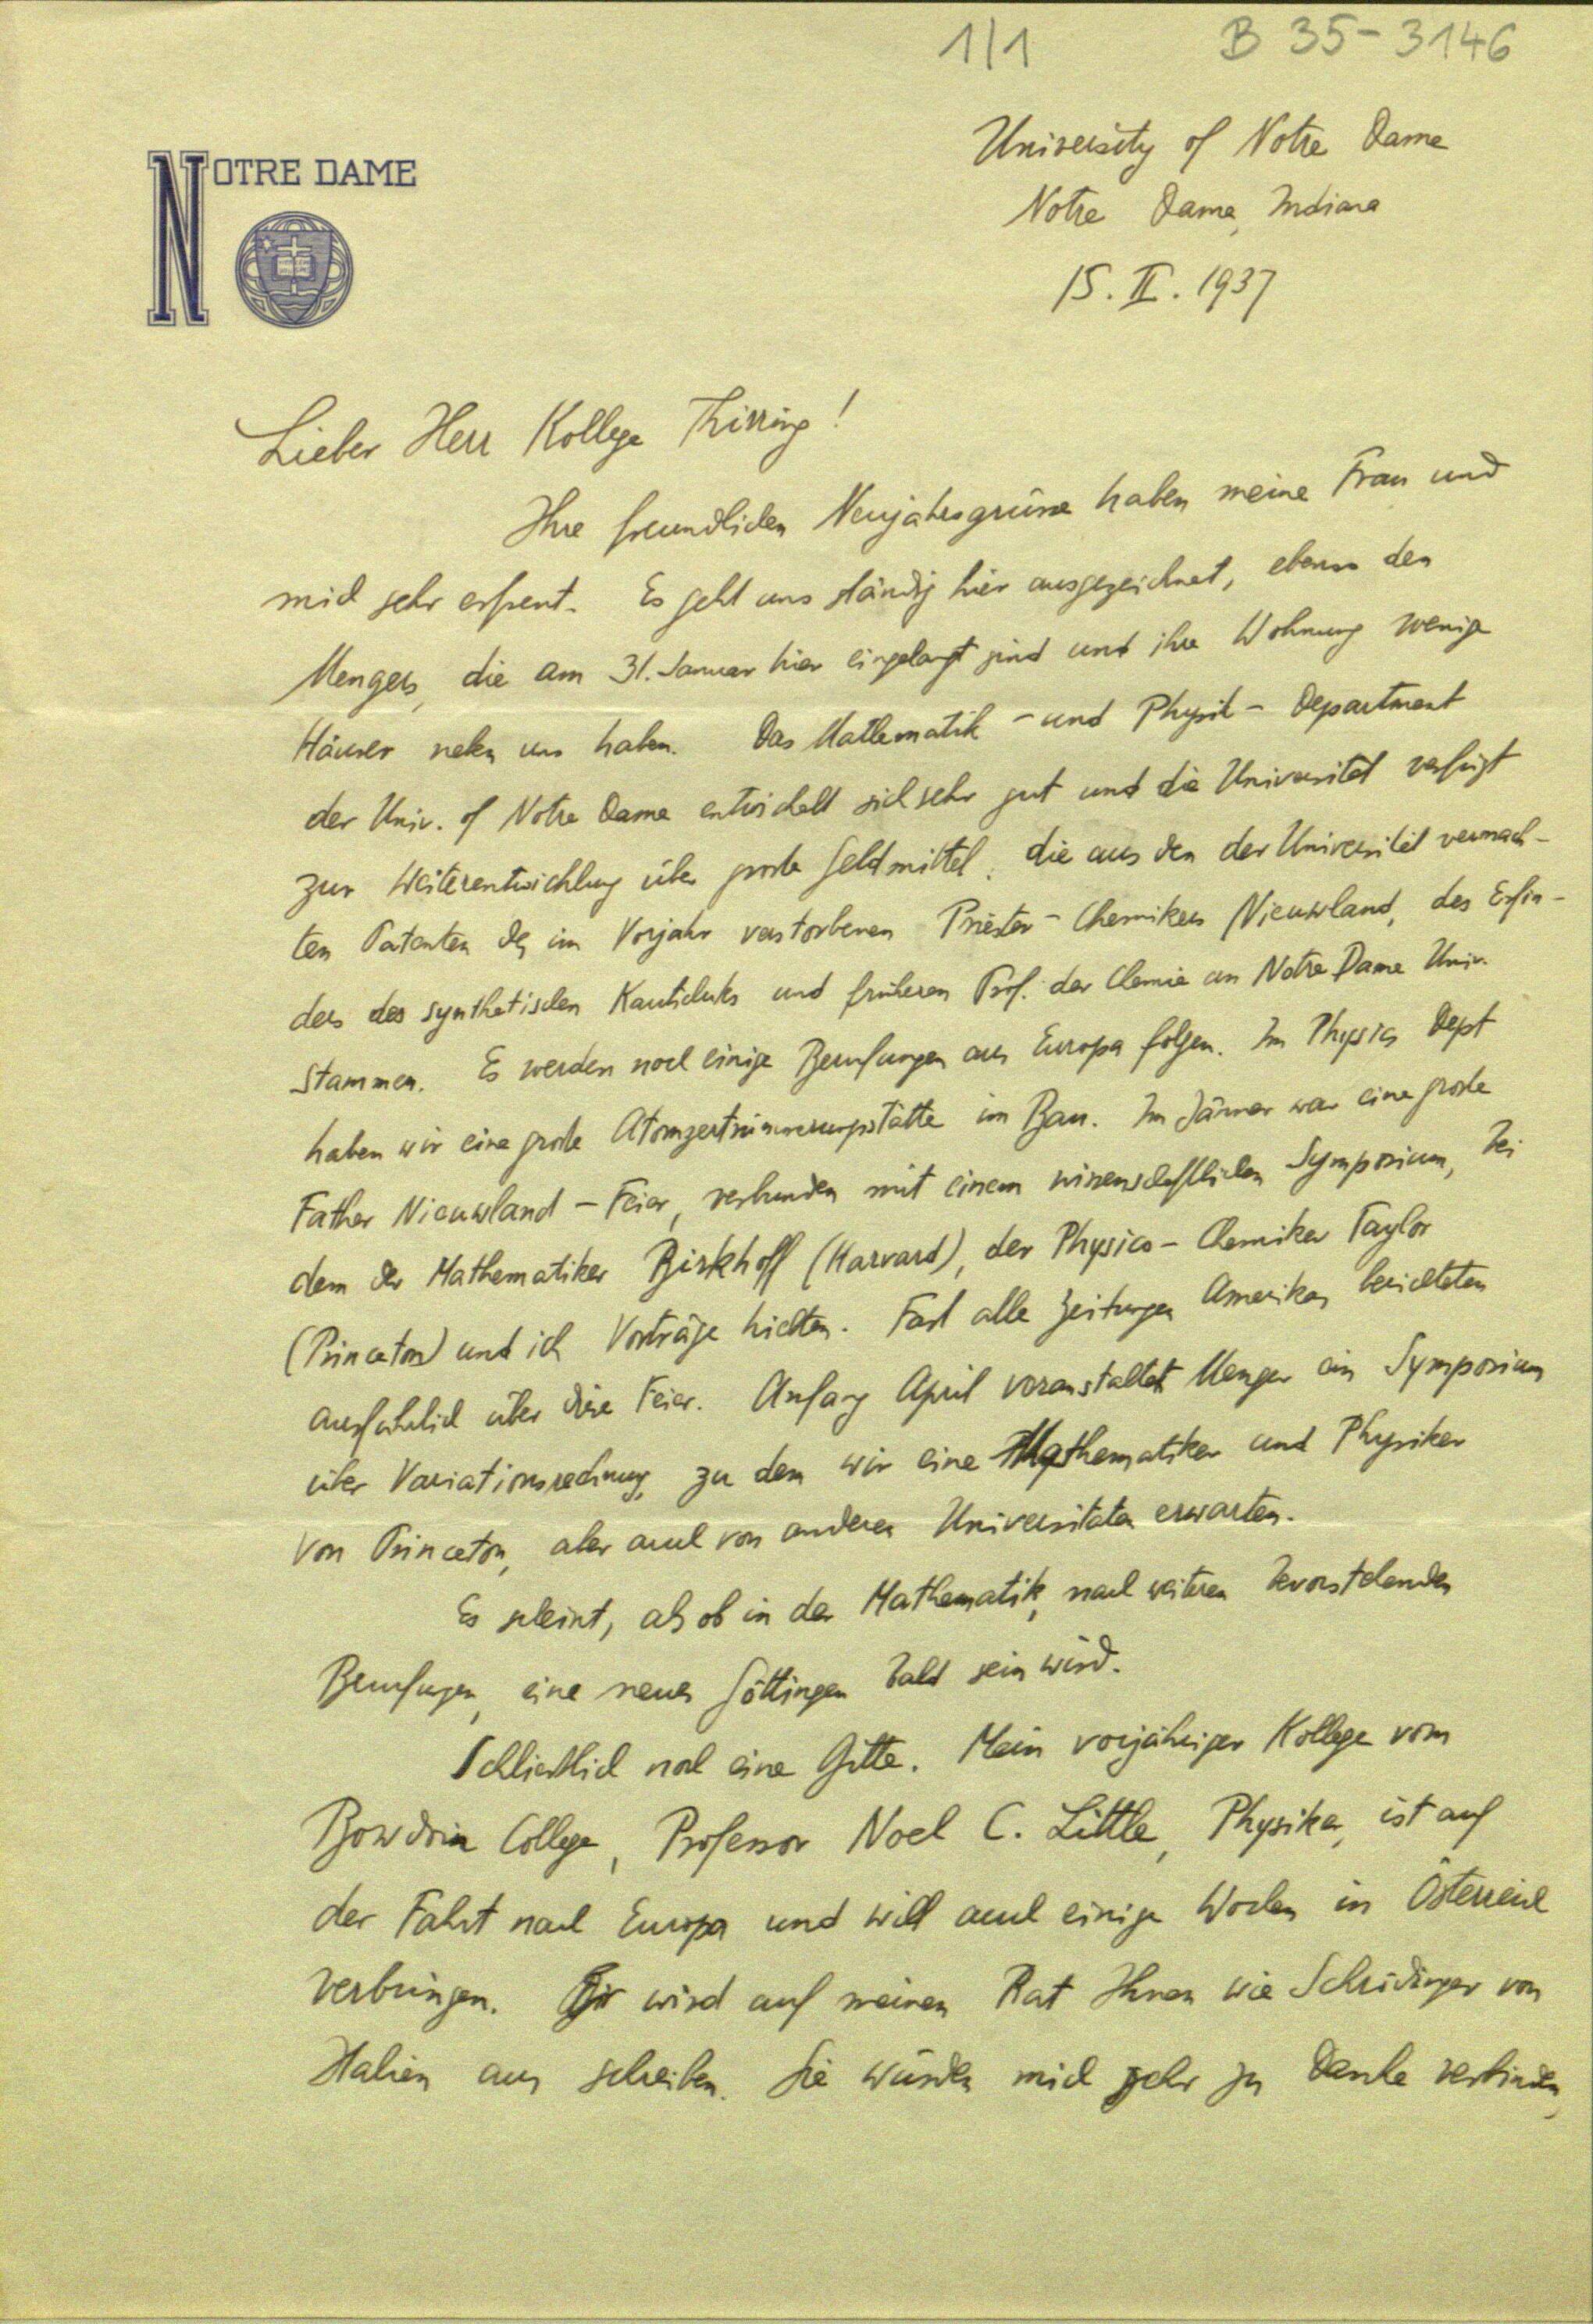 1/1 B 35-3146
NOTRE DAME
University of Notre Dame
Notre Dame, Indiana
15. II. 1937
Lieber Herr Kollege Thirring!
Ihre freundlichen Neujahrsgrüsse haben meine Frau und
mich sehr erfreut. Es geht uns ständig hier ausgezeichnet, ebenso den
Mengers, die am 31. Januar hier eingelangt sind und ihre Wohnung wenige
Häuser neben uns haben. Das Mathematik- und Physik-Department
der Univ. of Notre Dame entwickelt sich sehr gut und die Universität verfügt
zur Weiterentwicklung über große Geldmittel, die aus den der Universität vermach-
ten Patenten des im Vorjahr verstorbenen Priester-Chemikers Nieuwland, des Erfin-
ders des synthetischen Kautschuks und früheren Prof. der Chemie an Notre Dame Univ.
stammen. Es werden noch einige Berufungen aus Europa folgen. Im Physics Dept
haben wir eine große Atomzertrümmerungsstätte im Bau. Im Jänner war eine große
Father Nieuwland-Feier, verbunden mit einem wissenschaftlichen Symposium, bei
dem der Mathematiker Birkhoff (Harvard), der Physico-Chemiker Taylor
(Princeton) und ich Vorträge hielten. Fast alle Zeitungen Amerikas berichteten
ausführlich über diese Feier. Anfang April veranstaltet Menger ein Symposium
über Variationsrechnung, zu dem wir eine Mathematiker und Physiker
von Princeton, aber auch von anderen Universitäten erwarten.
Es scheint, als ob in der Mathematik, nach weiteren bevorstehenden
Berufungen, eine neues Göttingen bald sein wird.
Schließlich noch eine Bitte. Mein vorjähriger Kollege vom
Bowdoin College, Professor Noel C. Little, Physiker, ist auf
der Fahrt nach Europa und will auch einige Wochen in Österreich
verbringen. Er wird auf meinen Rat Ihnen wie Schrödinger von
Italien aus schreiben. Sie würden mich sehr zu Danke verbinden,